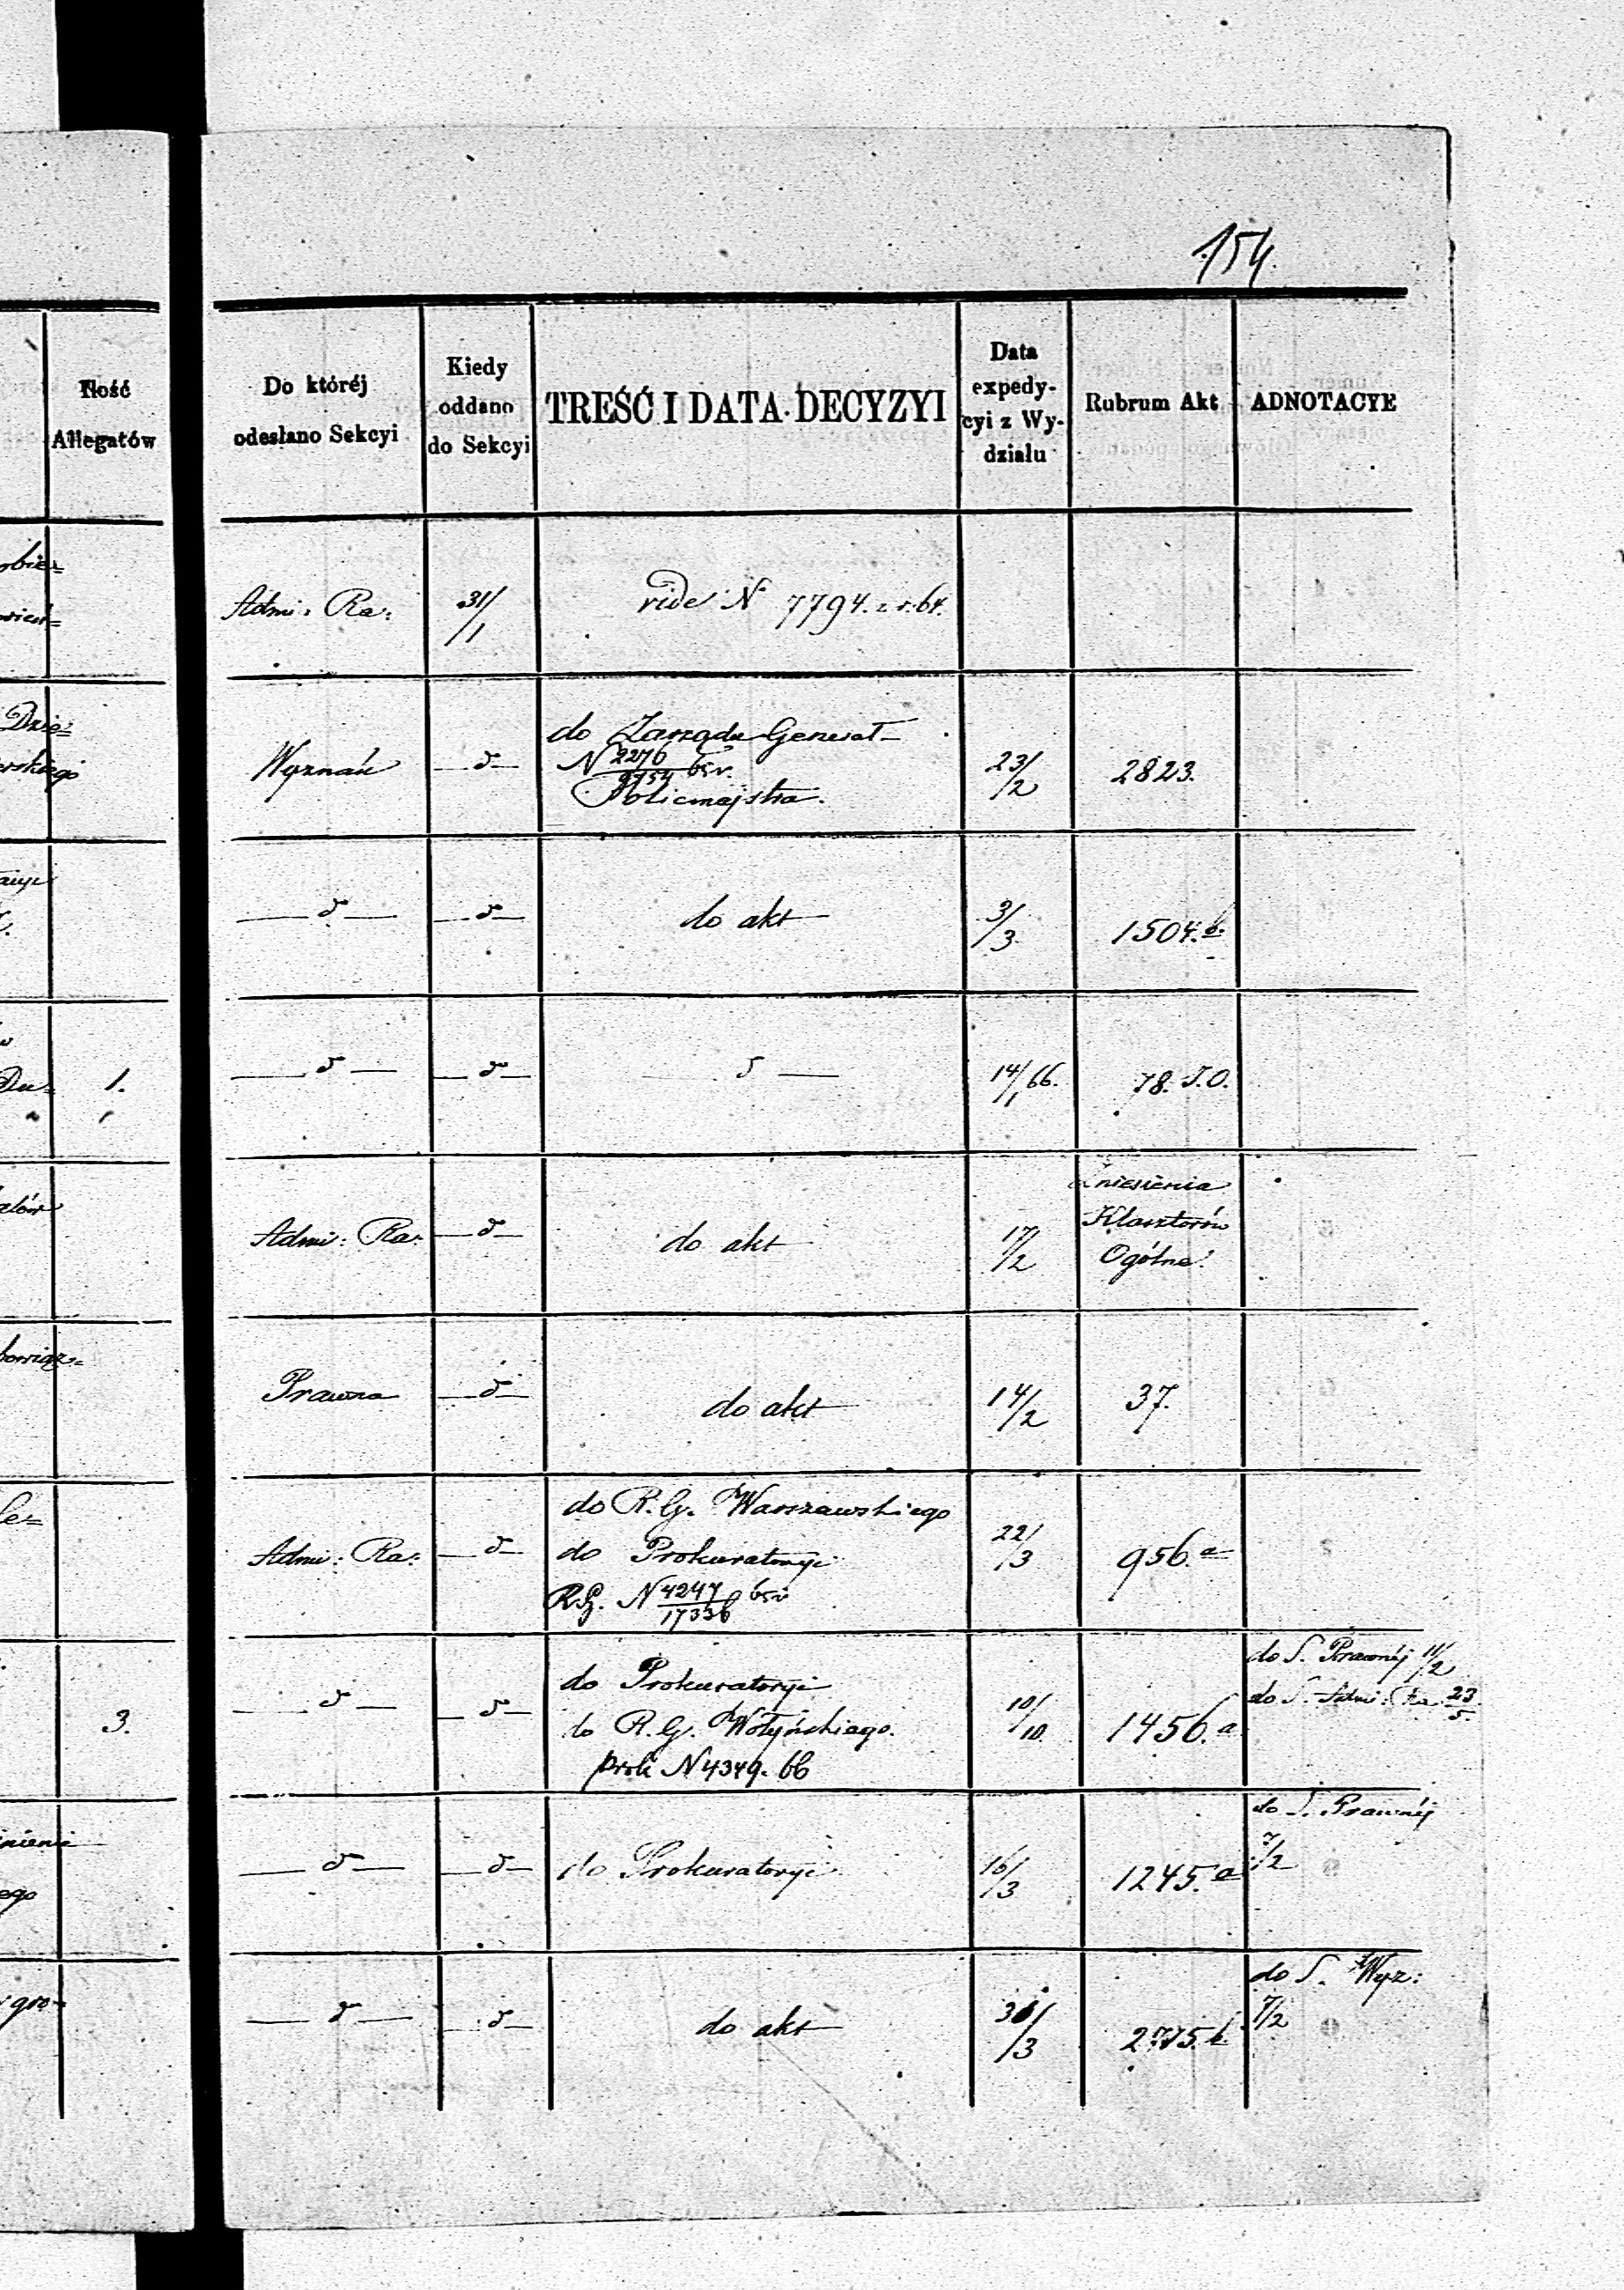 154.
Ilość
Allegatów
Do któréj
odesłano Sekcyi
Kiedy
oddano
do Sekcyi
TREŚĆ I DATA DECYZYI
Data
expedy-
cyi z Wy-
działu
Rubrum Akt
ADNOTACYE
Admi: Ra:
31/1
vide N 7794. z r. 64.
Wyznań
— d —
do Zarządu Generał
N 2276/9754 65 r.
Policmajstra.
23/2
2823.
— d —
— d —
do akt
3/3
1504. b.
1.
— d —
— d —
— d —
14/1 66.
78.
Zniesienia
Klasztorów
Ogólne
Admi: Ra:
— d —
do akt
17/2
Prawna
— d —
do akt
14/2
37.
Admi: Ra:
— d —
do R. G. Warszawskiego
do Prokuratoryi
R.G. N 4247/17336 65 r
22/3
956. a
3.
— d —
— d —
do Prokuratoryi
do R. G. Wołyńskiego.
Prok N 4349. 66
10/10
1456. a
do S. Prawnéj 11/2
do S. Admi: Ra 23/5.
— d —
— d —
do Prokuratoryi
16/3
1245. a
do S. Prawnéj
7/2
— d —
— d —
do akt
/3
b.
do S. Wyz:
7/2